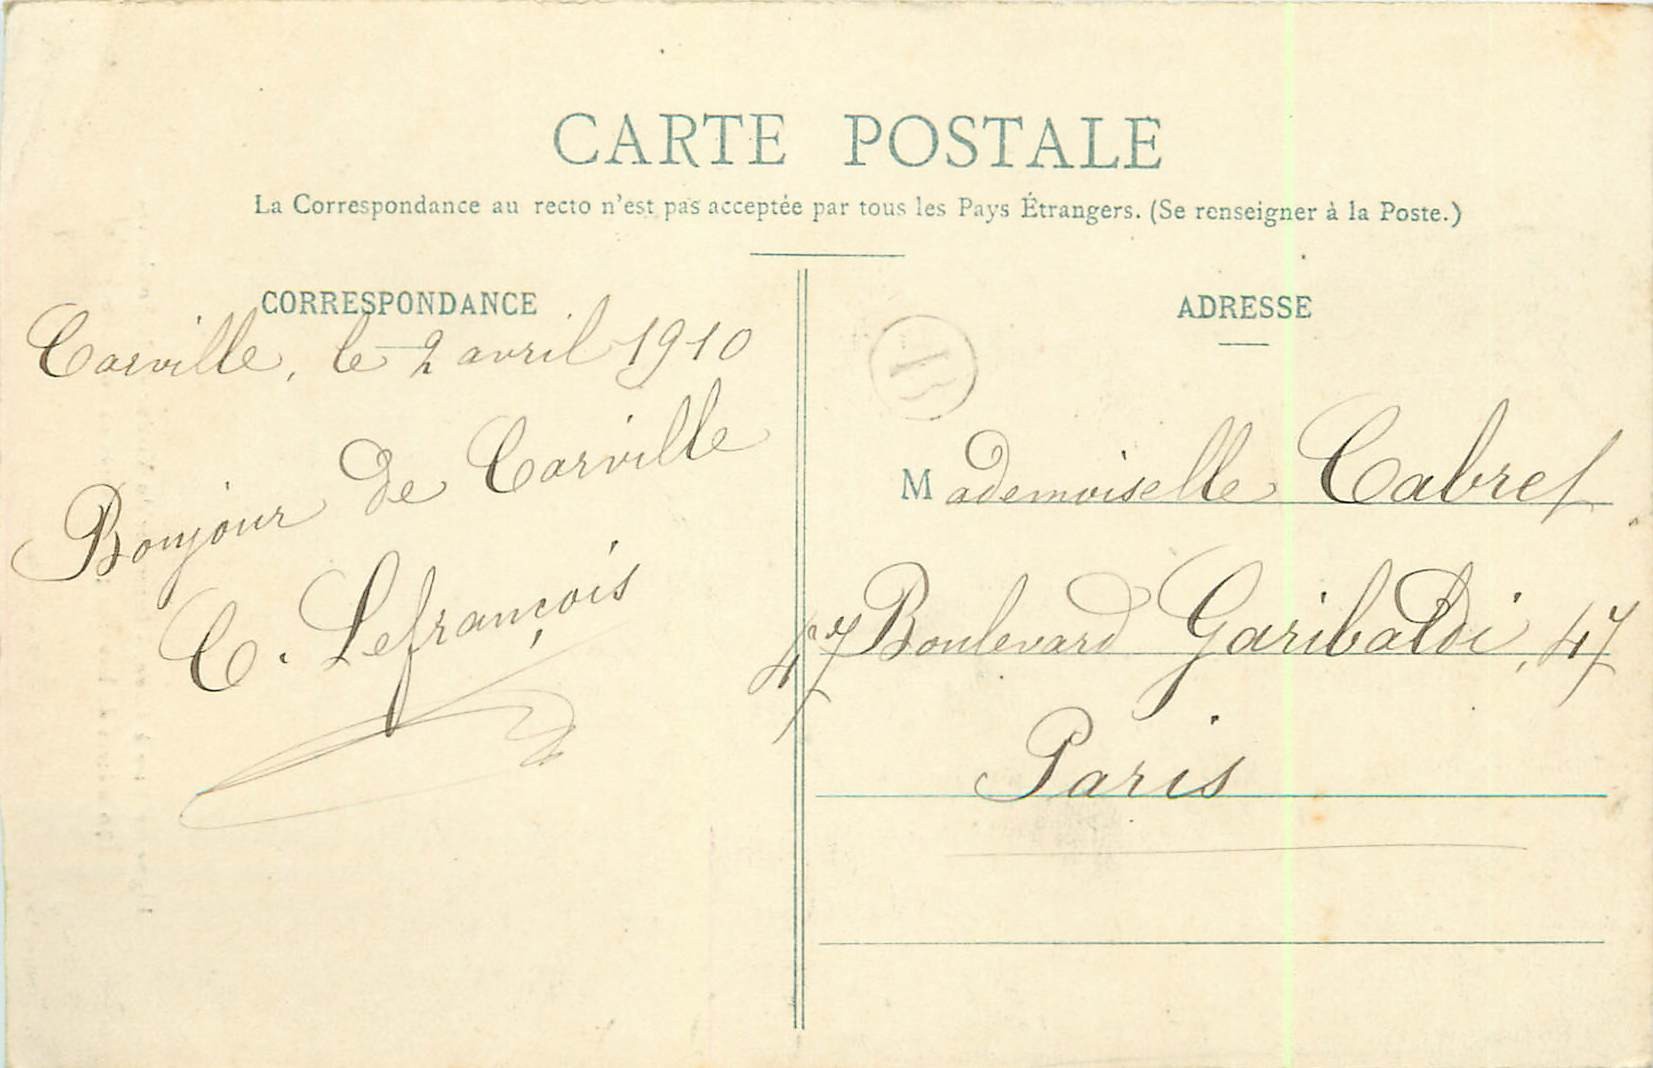 CARTE POSTALE
La Correspondance au recto n'est pas acceptée par tous les Pays Étrangers. (Se renseigner à la Poste.)
CORRESPONDANCE
Carville, le 2 avril 1910
Bonjour de Carville
C. Lefrançois
ADRESSE
Mademoiselle Cabret
47 Boulevard Garibaldi, 47
Paris